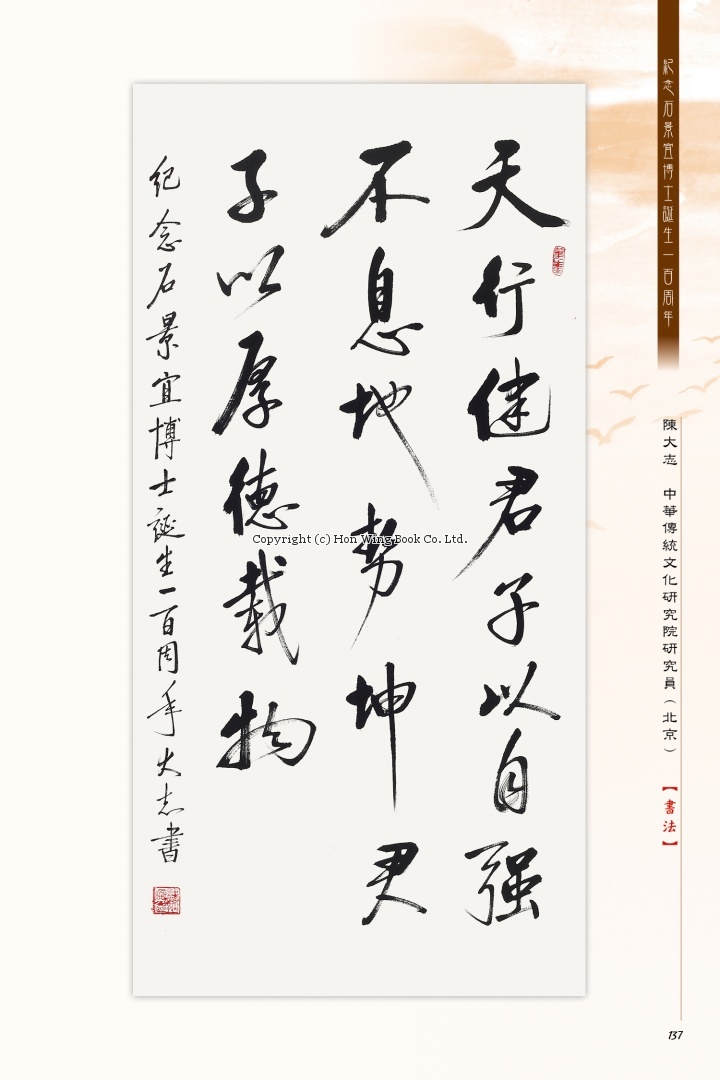 天行健君子以自强
不息地势坤君
子以厚德載物
紀念石景宜博士誕生一百周年大志書
Copyright (c) Hon Wing Book Co. Ltd.
紀念石景宜博士誕生一百周年
陳大志　中華傳統文化研究院研究員（北京）【書法】
137